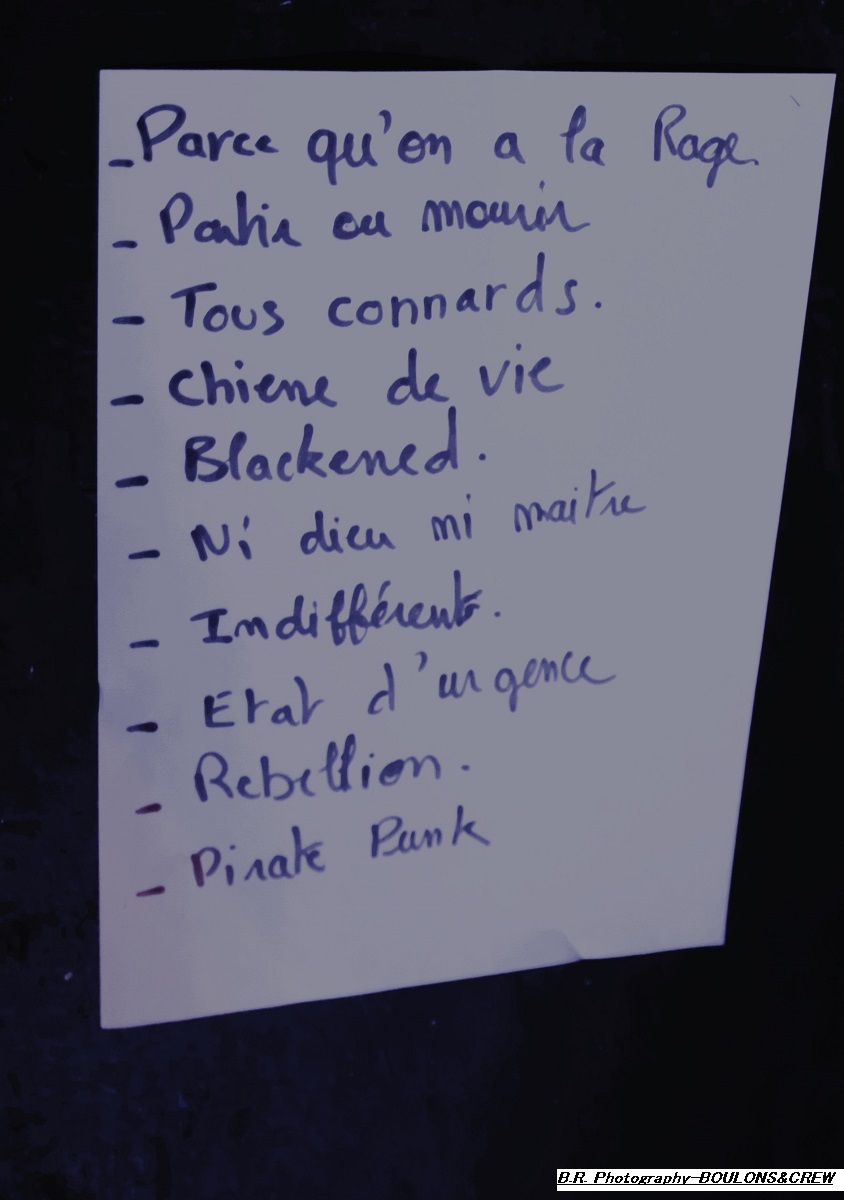 - Parce qu'on a la Rage.
- Partir ou mourir
- Tous connards.
- Chiene de vie
- Blackened.
- Ni dieu ni maitre
- Indifférents.
- Etat d'urgence
- Rebellion.
- Pirate Punk
B.R. Photography-BOULONS&CREW